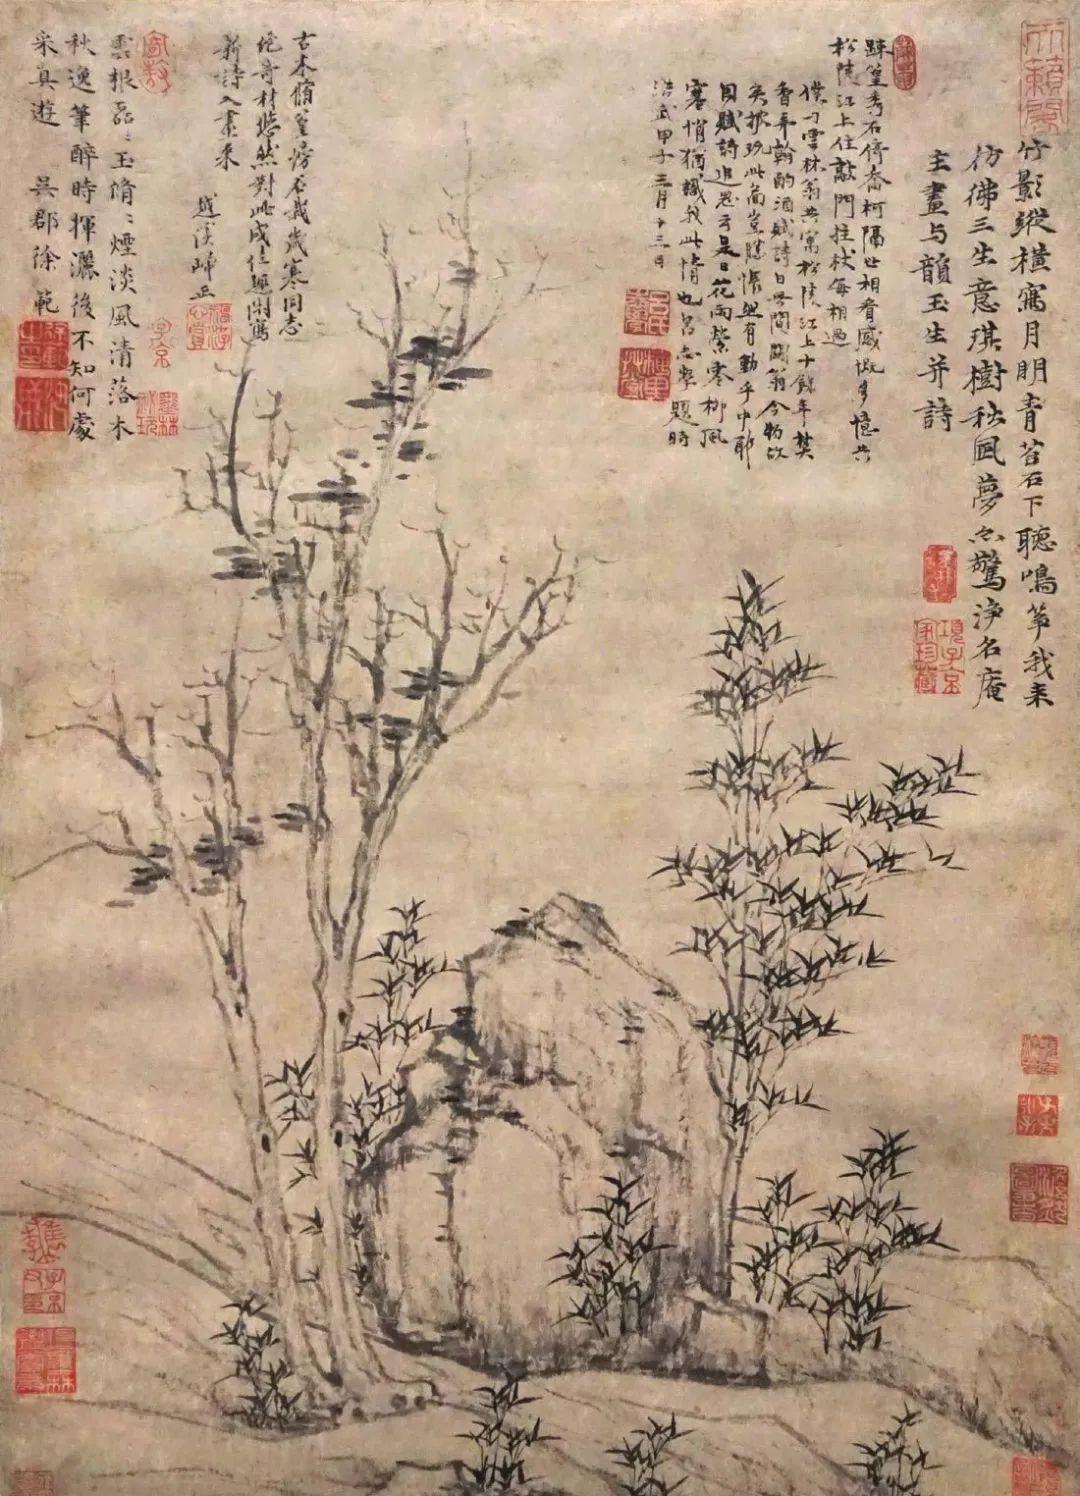 竹影縱橫寫月明青苔石下聽鳴箏我來
仿佛三生意琪樹秋風夢亦驚淨名庵
主畫与韻玉生并詩
踈篁秀石倚喬柯隔世相看感慨多憶共
松陵江上住敲門拄杖每相過
僕与雲林翁共寓松陵江上十餘年焚
香弄翰酌酒賦詩日無間闕翁今物故
矣披玩此圖豈勝悵然有動乎中耶
因賦詩追思云是日花雨縈寒柳風
寒悄猶識我此情也呂志學題時
洪武甲子三月十三日
古木脩篁傍石栽歲寒同志
絕奇材悠然對此成佳趣附寫
新詩入畫來
越溪歸正
雲根磊磊玉脩脩煙淡風清落木
秋逸筆醉時揮灑後不知何處
采真遊
吳郡徐範
項子京
家珍藏
子京